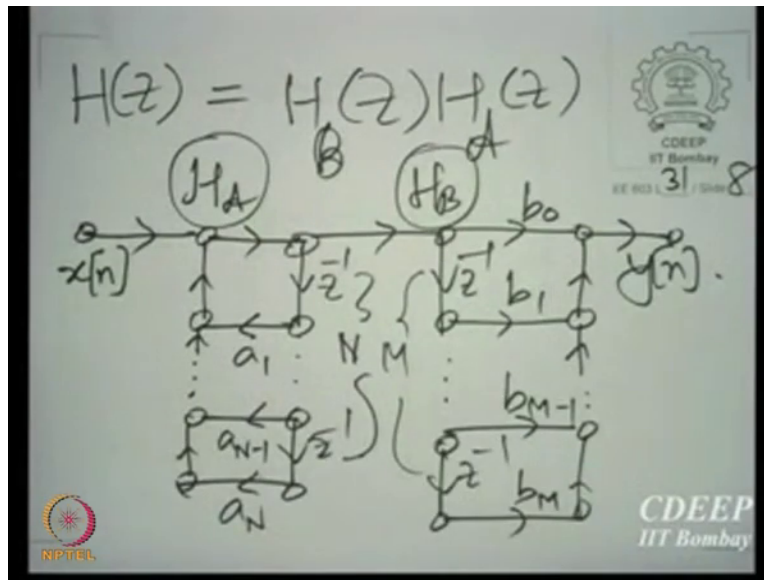 H(z) = H_B(z) H_A(z)
CDEEP
IIT Bombay
EE 603 L 31 / Slide 8
H_A
H_B
b_0
x[n]
z^-1
z^-1
y[n].
b_1
a_1
N
M
b_M-1
a_N-1
z^-1
z^-1
b_M
a_N
NPTEL
CDEEP
IIT Bombay